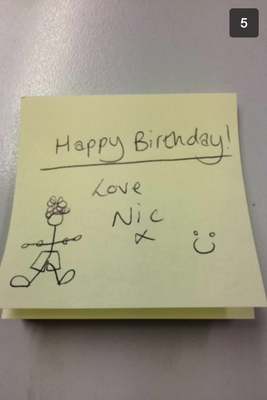 5
Happy Birthday!
Love
Nic
x